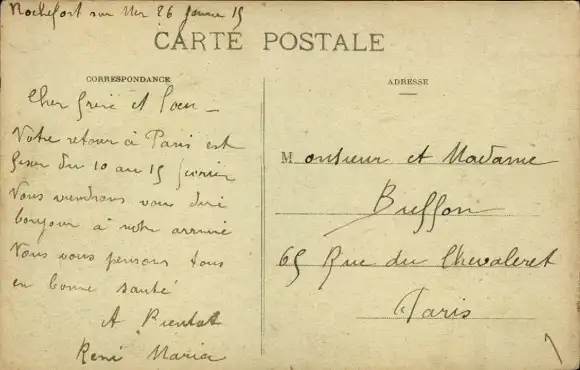 Rochefort sur Mer 26 Janvier 15
CARTE POSTALE
CORRESPONDANCE
ADRESSE
Cher frère et soeu -
Votre retour à Paris est
fixer du 10 au 15 fevrier
Nous viendrons vous dire
bonjour à notre arrivé
Nous vous pensons tous
en bonne santé
A Bientot
René Maria
Monsieur et Madame
Buffon
65 Rue du Chevaleret
Paris